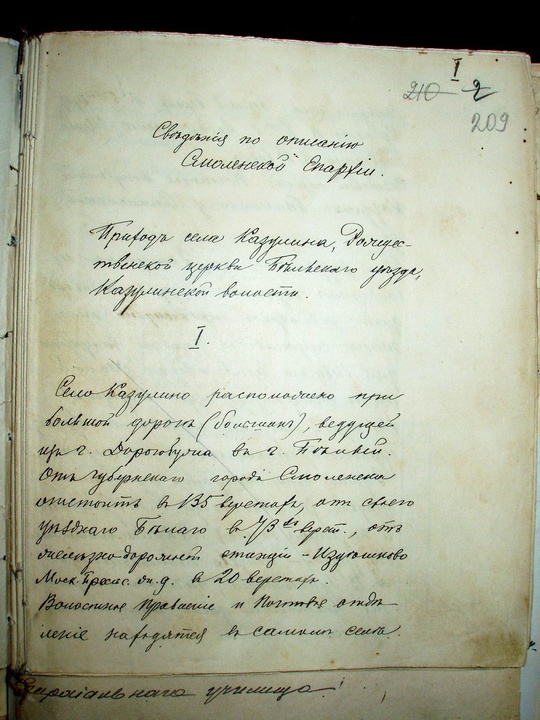 I
210 2
209
Свѣдѣнія по описанію
Смоленской Епархіи.
Приходъ села Казулина, Рождес-
твенской церкви Бѣльскаго уѣзда,
Казулинской волости.
I.
Село Казулино расположено при
большой дорогѣ (большакъ), ведущей
изъ г. Дорогобужа въ г. Бѣлый.
Отъ губернскаго города Смоленска
отстоитъ въ 135 верстахъ, отъ своего
уѣзднаго Бѣлаго въ верст., отъ
желѣзно-дорожной станціи - Издѣшково
Моск. Брест. ж. д. въ 20 верстахъ.
Волостное Правленіе и Почтовое отдѣ-
леніе находятся въ самомъ селѣ.
училища.